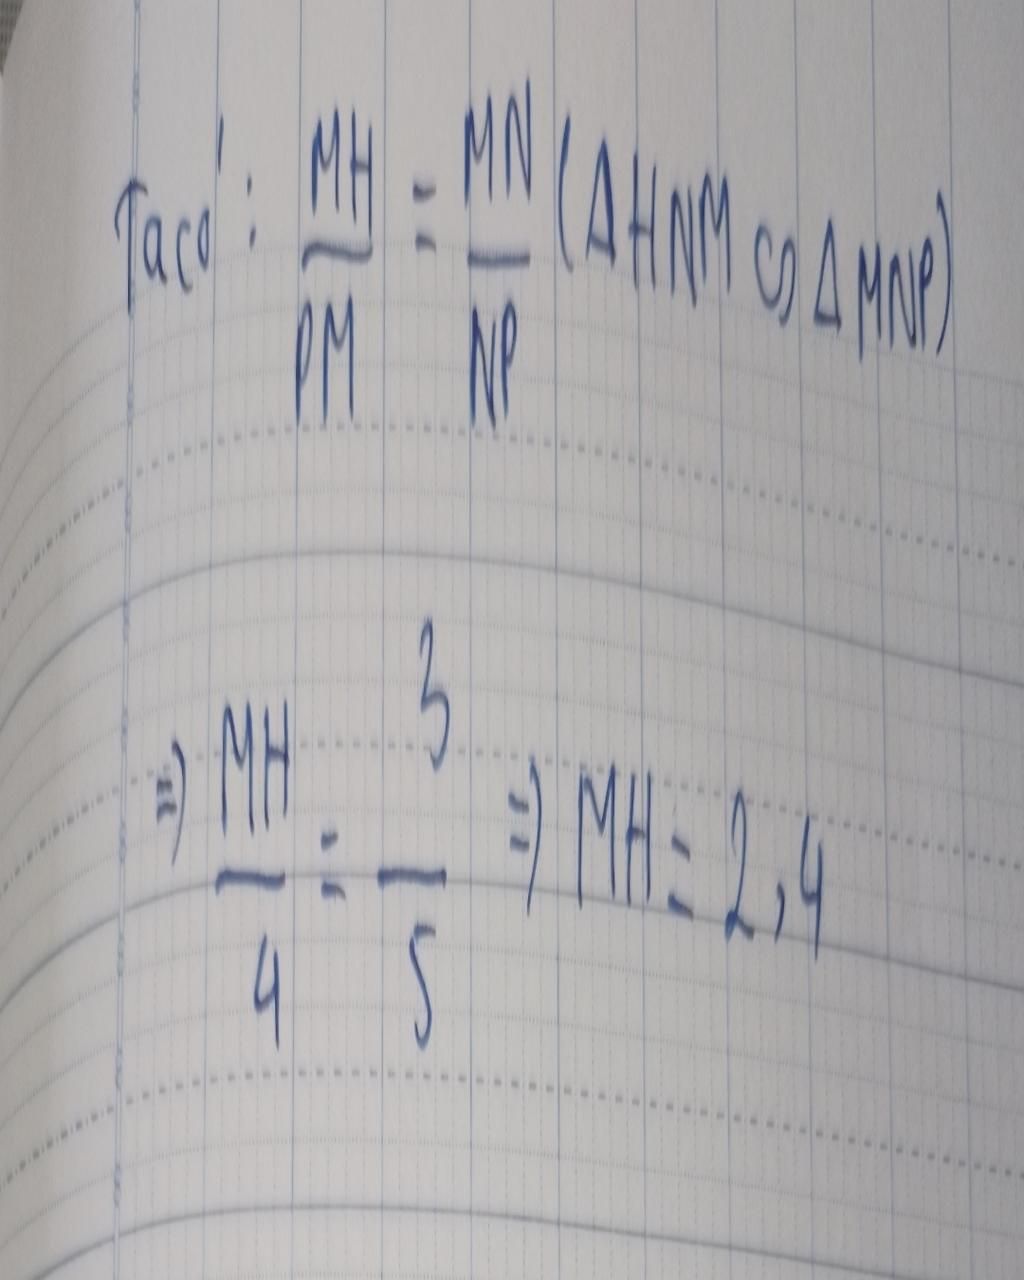 Ta có: MH/PM = MN/NP (Δ HNM ∽ Δ MNP)
⇒ MH/4 = 3/5 ⇒ MH = 2,4